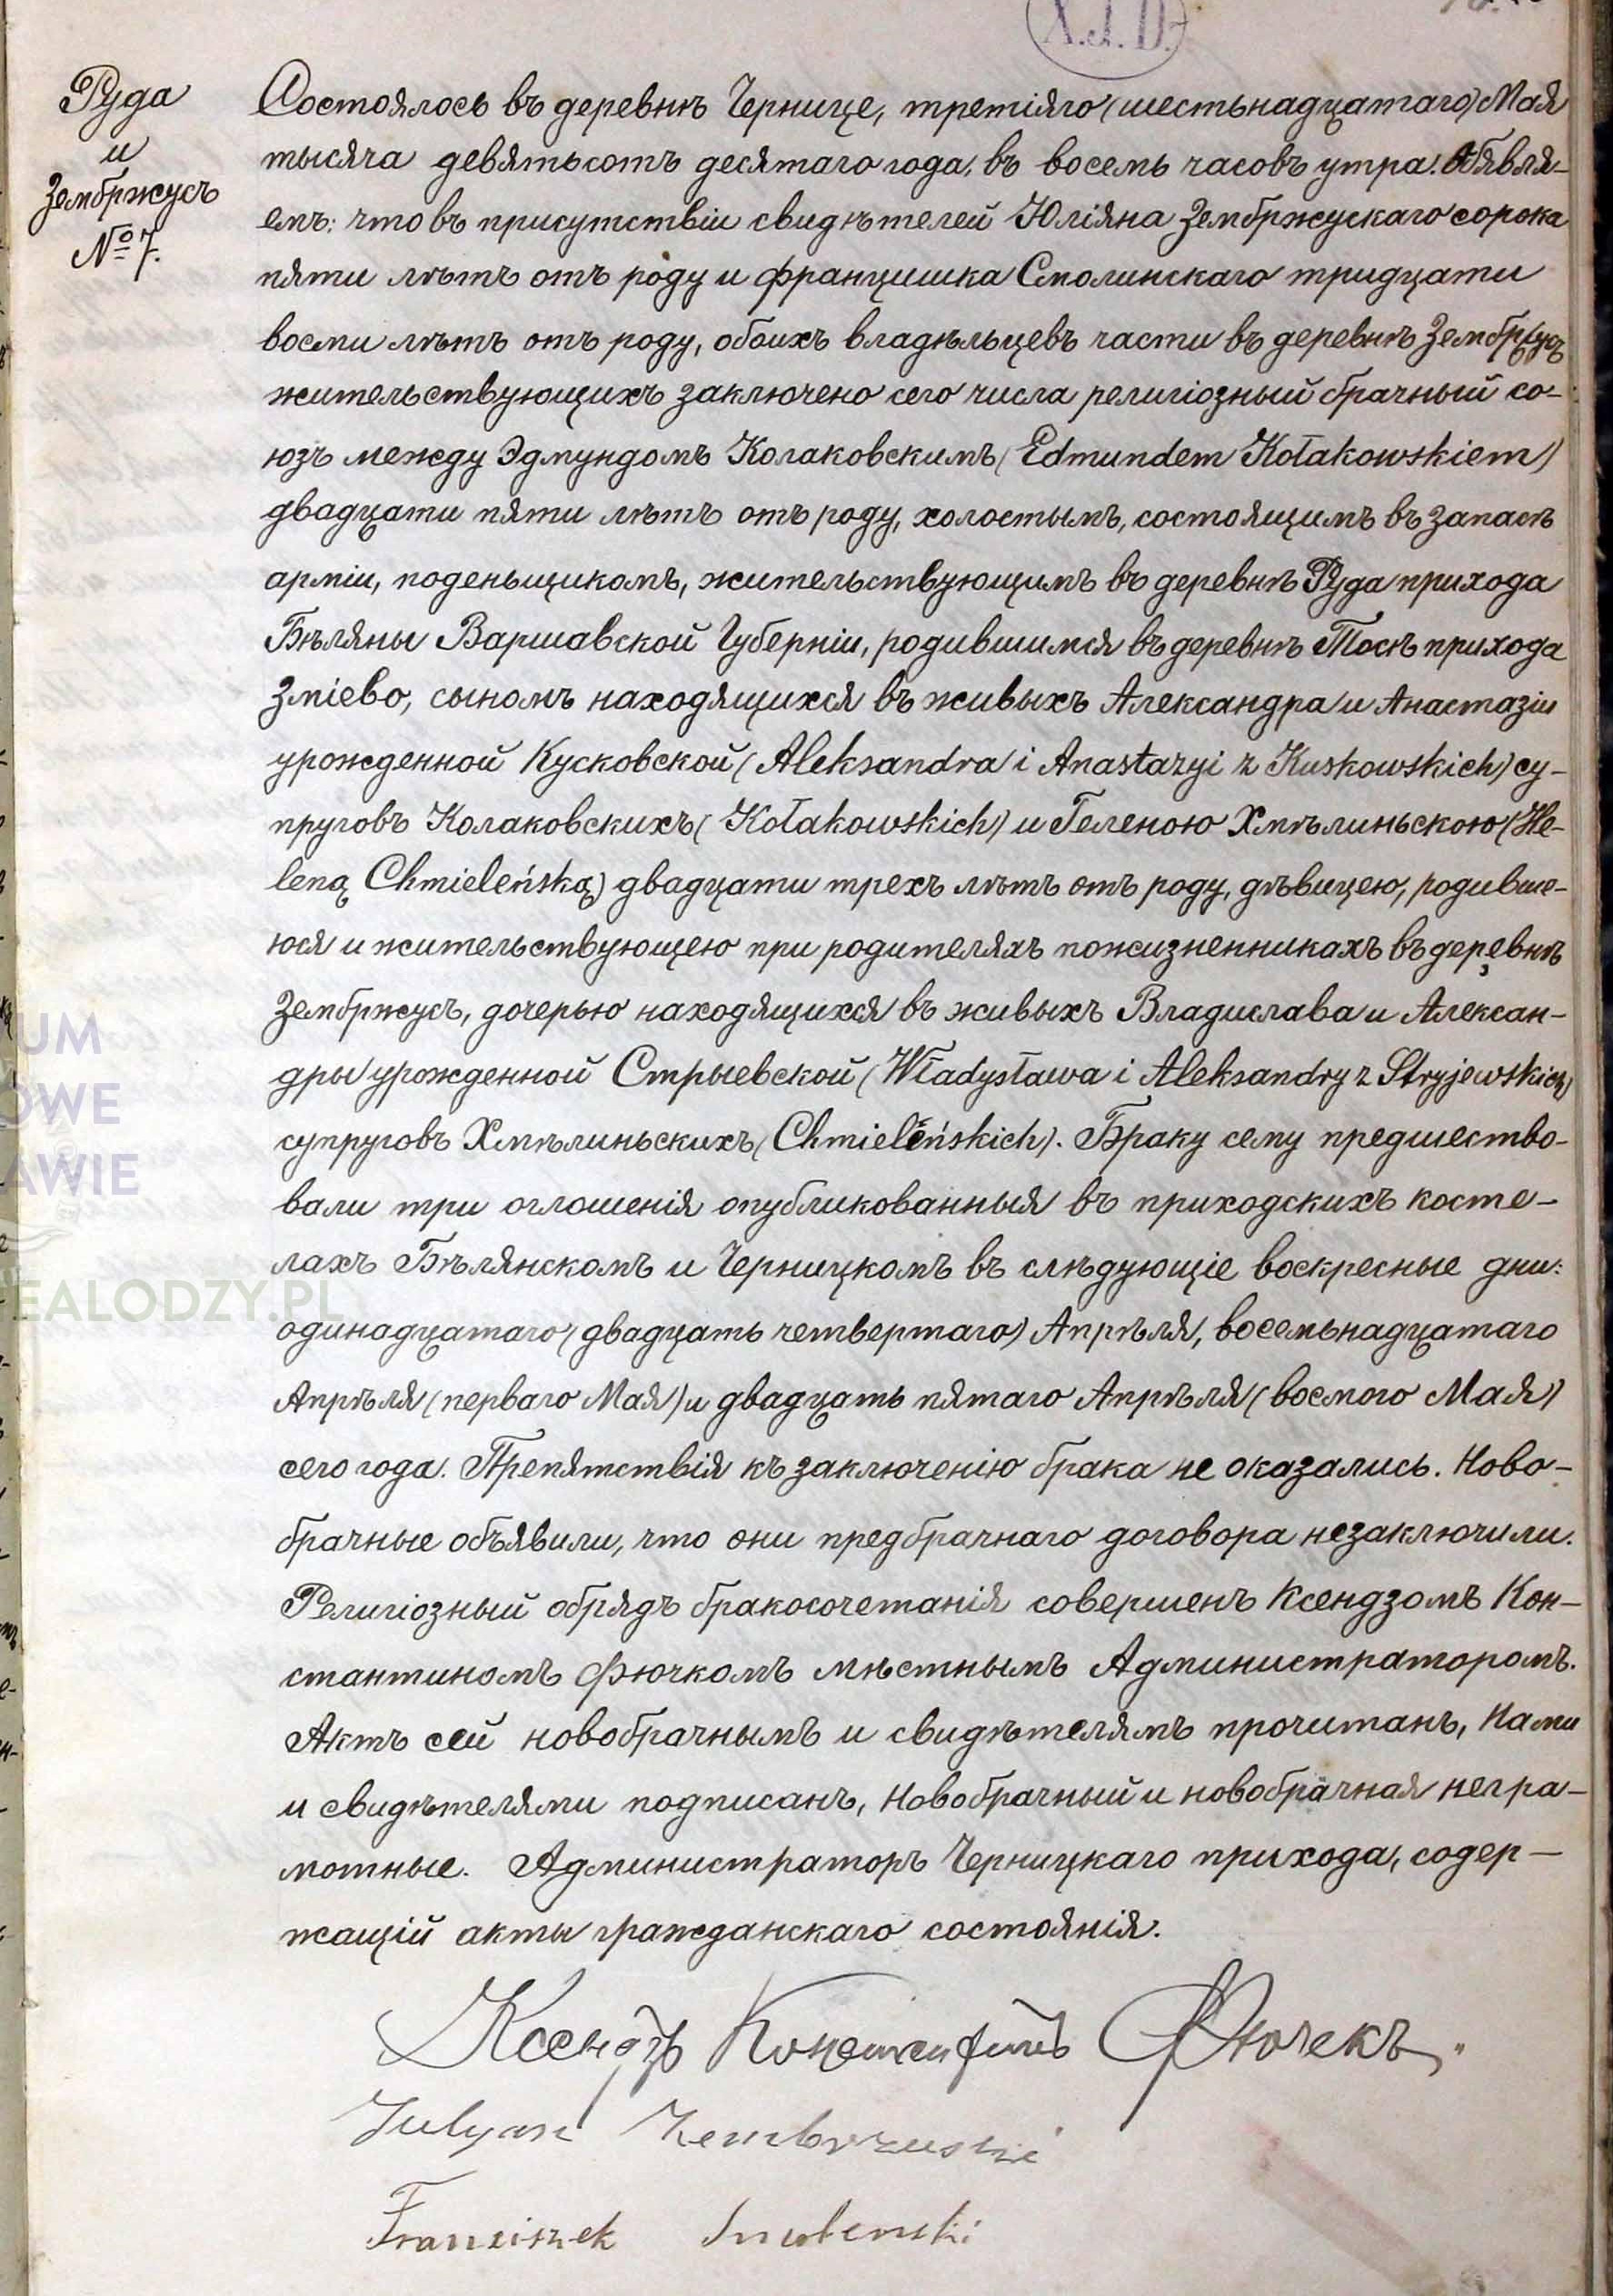 X.J.D.
Руда
и
Зембржусъ
№ 7.
Состоялось въ деревнѣ Чернице, третіяго (шестьнадцатаго) Мая
тысяча девятьсотъ десятаго года, въ восемь часовъ утра. Объявля-
емъ: что въ присутствіи свидѣтелей Юліяна Зембржускаго сорока
пяти лѣтъ отъ роду и Францишка Смолинскаго тридцати
восми лѣтъ отъ роду, обоихъ владѣльцевъ части въ деревнѣ
жительствующихъ заключено сего числа религіозный брачный со-
юзъ между Эдмундомъ Колаковскимъ (Edmundem Kołakowskiem)
двадцати пяти лѣтъ отъ роду, холостымъ, состоящимъ въ запасѣ
арміи, поденьщикомъ, жительствующимъ въ деревнѣ Руда прихода
Бѣляны Варшавской Губерніи, родившимся въ деревнѣ Тоснѣ прихода
Зміево, сыномъ находящихся въ живыхъ Александра и Анастазіи
урожденной Кусковской (Aleksandra i Anastazyi z Kuskowskich) су-
пруговъ Колаковскихъ (Kołakowskich) и Геленою Хмѣлиньскою (He-
leną Chmieleńską) двадцати трехъ лѣтъ отъ роду, дѣвицею, родивше-
юся и жительствующею при родителяхъ пожизненникахъ въ деревнѣ
Зембржусъ, дочерью находящихся въ живыхъ Владислава и Алексан-
дры урожденной Стрыевской (Władysława i Aleksandry z Stryjewskich)
супруговъ Хмѣлиньскихъ (Chmieleńskich). Браку сему предшество-
вали три оглошенія опубликованныя въ приходскихъ косте-
лахъ Бѣлянскомъ и Черницкомъ въ слѣдующіе воскресные дни:
одинадцатаго (двадцать четвертаго) Апрѣля, восемьнадцатаго
Апрѣля (перваго Мая) и двадцать пятаго Апрѣля (восмого Мая)
сего года. Препятствія къ заключенію брака не оказались. Ново-
брачные объявили, что они предбрачнаго договора незаключили.
Религіозный обрядъ бракосочетанія совершенъ Ксендзомъ Кон-
стантиномъ Фючкомъ мѣстнымъ Администраторомъ.
Актъ сей новобрачнымъ и свидѣтелямъ прочитанъ, Нами
и свидѣтелями подписанъ, Новобрачный и новобрачная негра-
мотные. Администраторъ Черницкаго прихода, содер-
жащій акты гражданскаго состоянія.
Ксендзъ Константинъ Фючекъ.
Julyan Zembrzuski
Franciszek Smolenski
UM
OWE
AWIE
EALODZY.PL